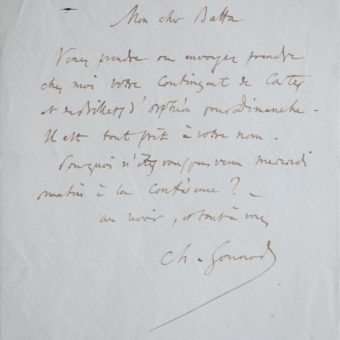 Mon cher Batta
Venez prendre ou envoyez prendre
chez moi votre Contingent de Cartes
et de Billets d'orphéon pour Dimanche.
Il est tout prêt à votre nom.
Pourquoi n'êtes vous pas venu mercredi
matin à la Conférence ? _
au revoir, et tout à vous
Ch. Gounod